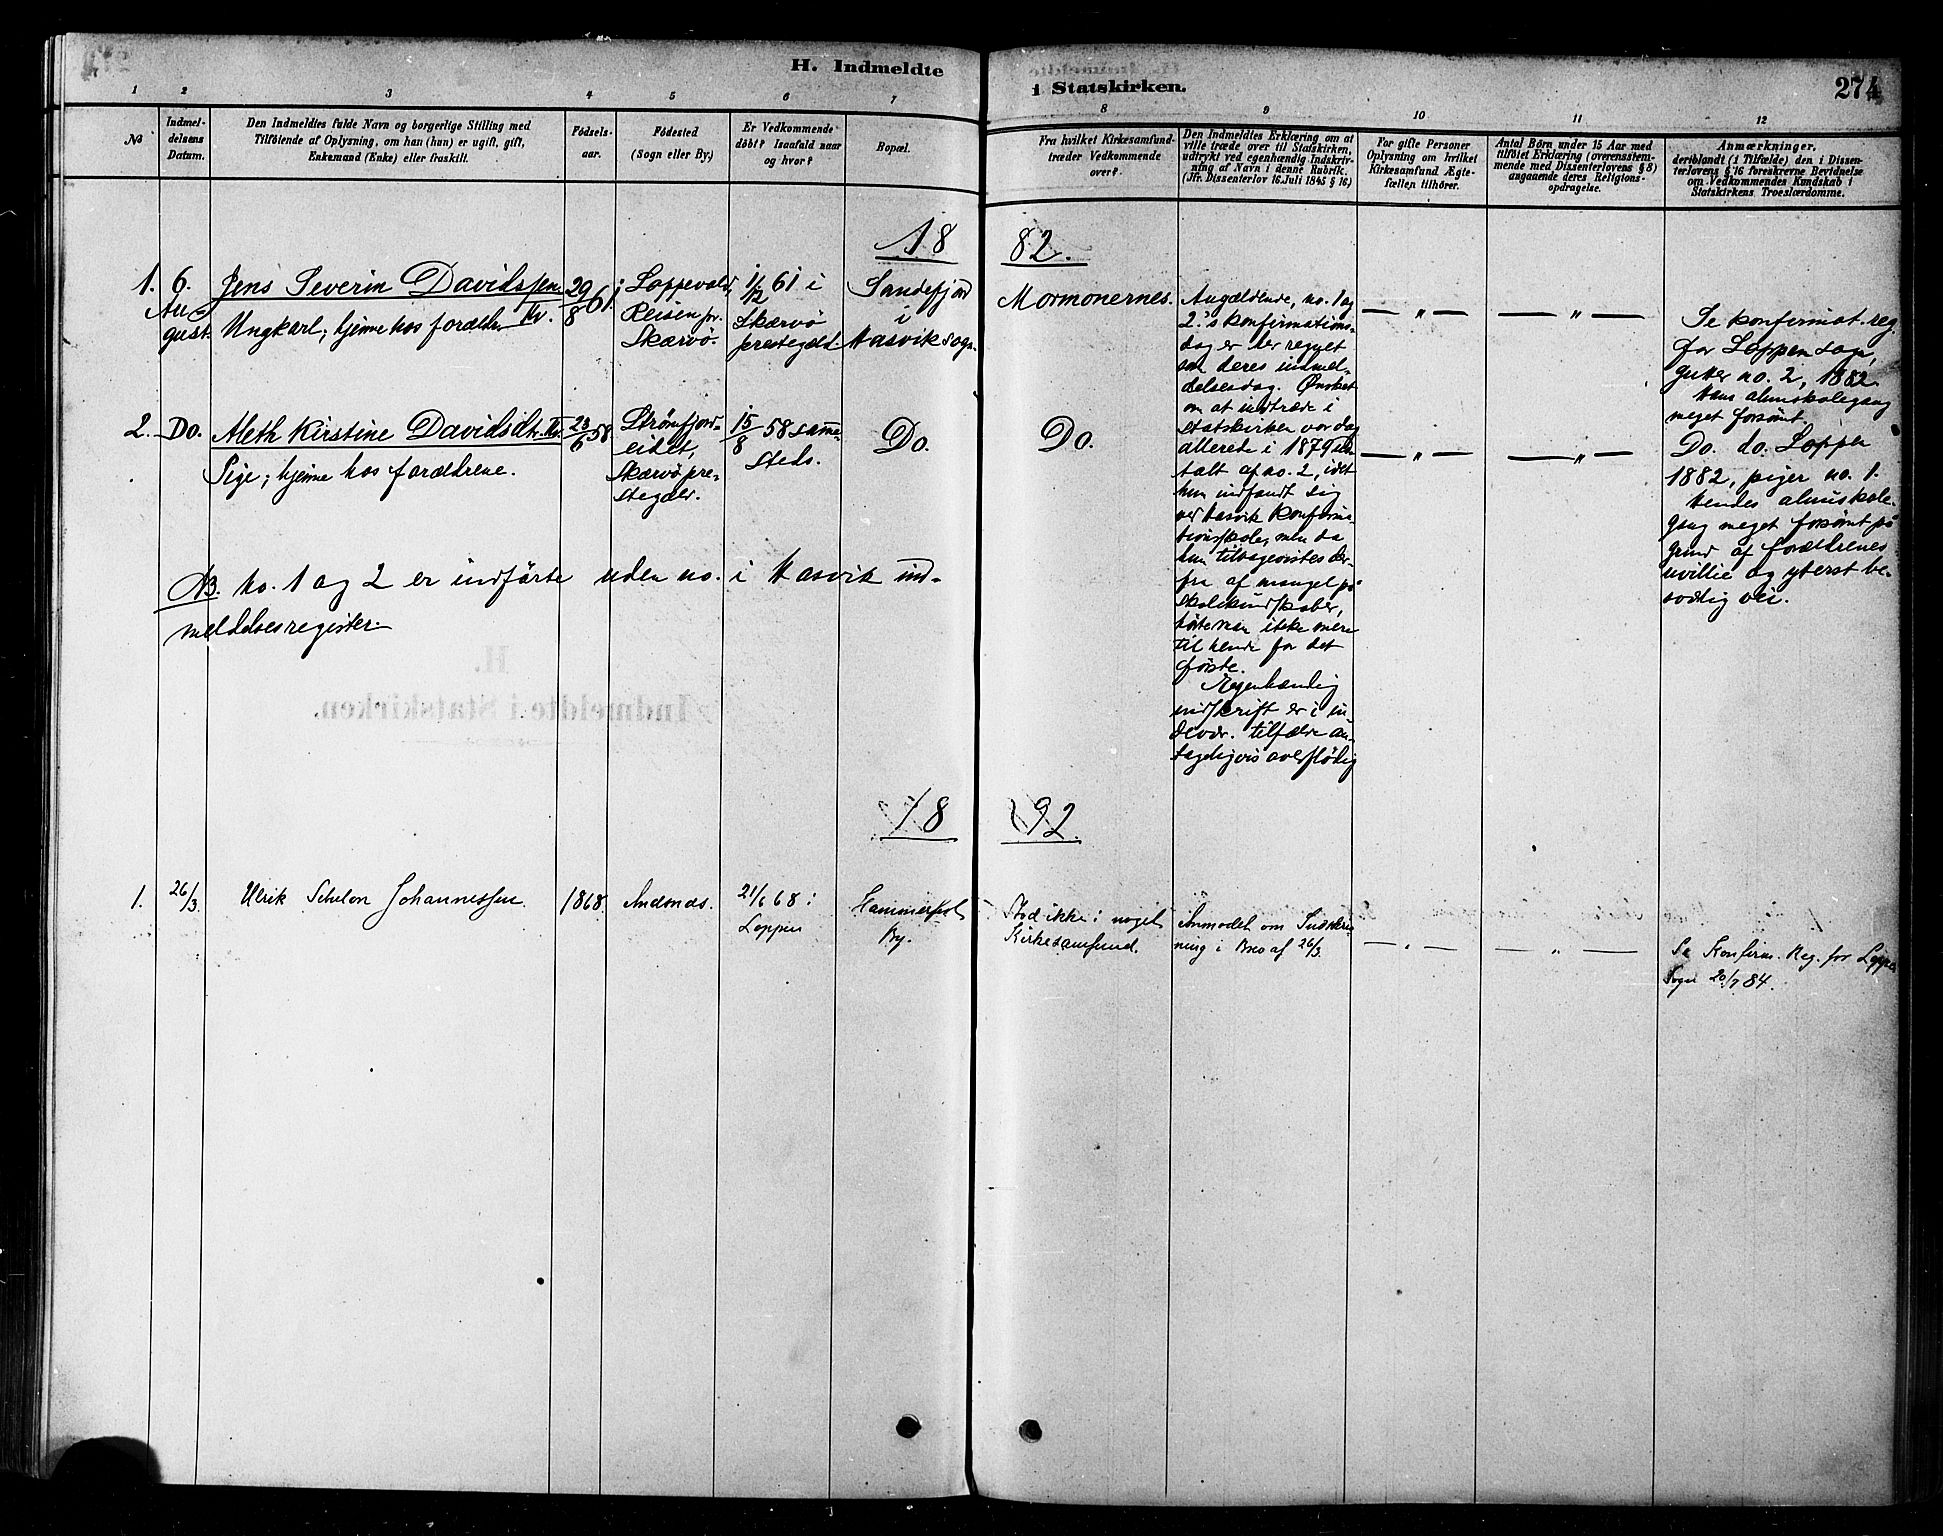 H. Indmeldte
i Statskirken.
274
1 2 3 4 5 6 7 8 9 10 11 12
No
Indmel-
delsens
Datum.
Den Indmeldtes fulde Navn og borgerlige Stilling med
Tilföiende af Oplysning, om han (hun) er ugift, gift,
Enkemand (Enke) eller fraskilt.
Födsels-
aar.
Födested
(Sogn eller By.)
Er Vedkommende
döbt? Isaafald naar
og hvor?
Bopæl.
Fra hvilket Kirkesamfund-
træder Vedkommende
over?
Den Indmeldtes Erklæring om at
ville træde over til Statskirken,
udtrykt ved egenhændig Indskriv-
ning af Navn i denne Rubrik.
(Jfr. Dissenterlov 16. Juli 1845 § 16)
For gifte Personer
Oplysning om hvilket
Kirkesamfund Ægte-
fællen tilhörer.
Antal Börn under 15 Aar med
tilföiet Erklæring (overensstem-
mende med Dissenterlovens § 8)
angaaende deres Religions-
opdragelse.
Anmærkninger,
deriblandt (i Tilfælde) den i Dissen-
terlovens § 16 foreskrevne Bevidnelse
om Vedkommendes Kundskab i
Statskirkens Troeslærdomme.
1882.
1.
6.
Au-
gust.
Jens Severin Davidssen
Ungkarl; hjemme hos forældrene
29/8 61
Loppevold,
Reisen
Skærvö.
1/12 61 i
Skærvö
prestegæld.
Sandefjord
i
Hasvik sogn.
Mormonernes.
Angældende, no. 1 og
2.'s konfirmations-
dag er her regnet
som deres indmel-
delsesdag. Önsket
om at indtræde i
statskirken var dog
allerede i 1879
talt af no. 2, idet
hun indfandt sig
ved Hasvik konfirma-
tionsskole, men da
hun tilbagevistes der-
fra af mangel på
skolekundskaber,
hörte man ikke mere
til hende for det
förste.
Egenhændig
indskrift er i nu-
devær. tilfælde an-
tageligvis overflödig
— „ —
— „ —
Se konfirmat. reg.
for Loppen sogn,
gutter no. 2, 1882.
Hans almuskolegang
meget forsömt.
2.
Do.
Aleth Kirstine Davidsdtr.
Pige; hjemme hos forældrene.
23/6 58
Strömfjord-
eidet,
Skærvö pre-
stegæld.
15/8 58 samme-
steds.
Do.
Do.
— „ —
— „ —
Do. do. Loppen
1882, piger no. 1.
Hendes almuskole-
gang meget forsömt på
grund af forældrenes
uvillie og yterst be-
sværlig vei.
NB. No. 1 og 2 er indförte uden no. i Hasvik ind-
meldelsesregister.
1892.
1.
26/3.
Ulrik Schelon Johannessen.
1868.
Andsnds.
21/6 68 i
Loppen
Hammerfest
By.
Stod ikke i noget
Kirkesamfund.
Anmodet om Indskriv-
ning i Brev af 26/3.
— „ —
— „ —
Se Konfirm. Reg. for Loppen
Sogn 20/7 84.
H.
Indmeldte i Statskirken.